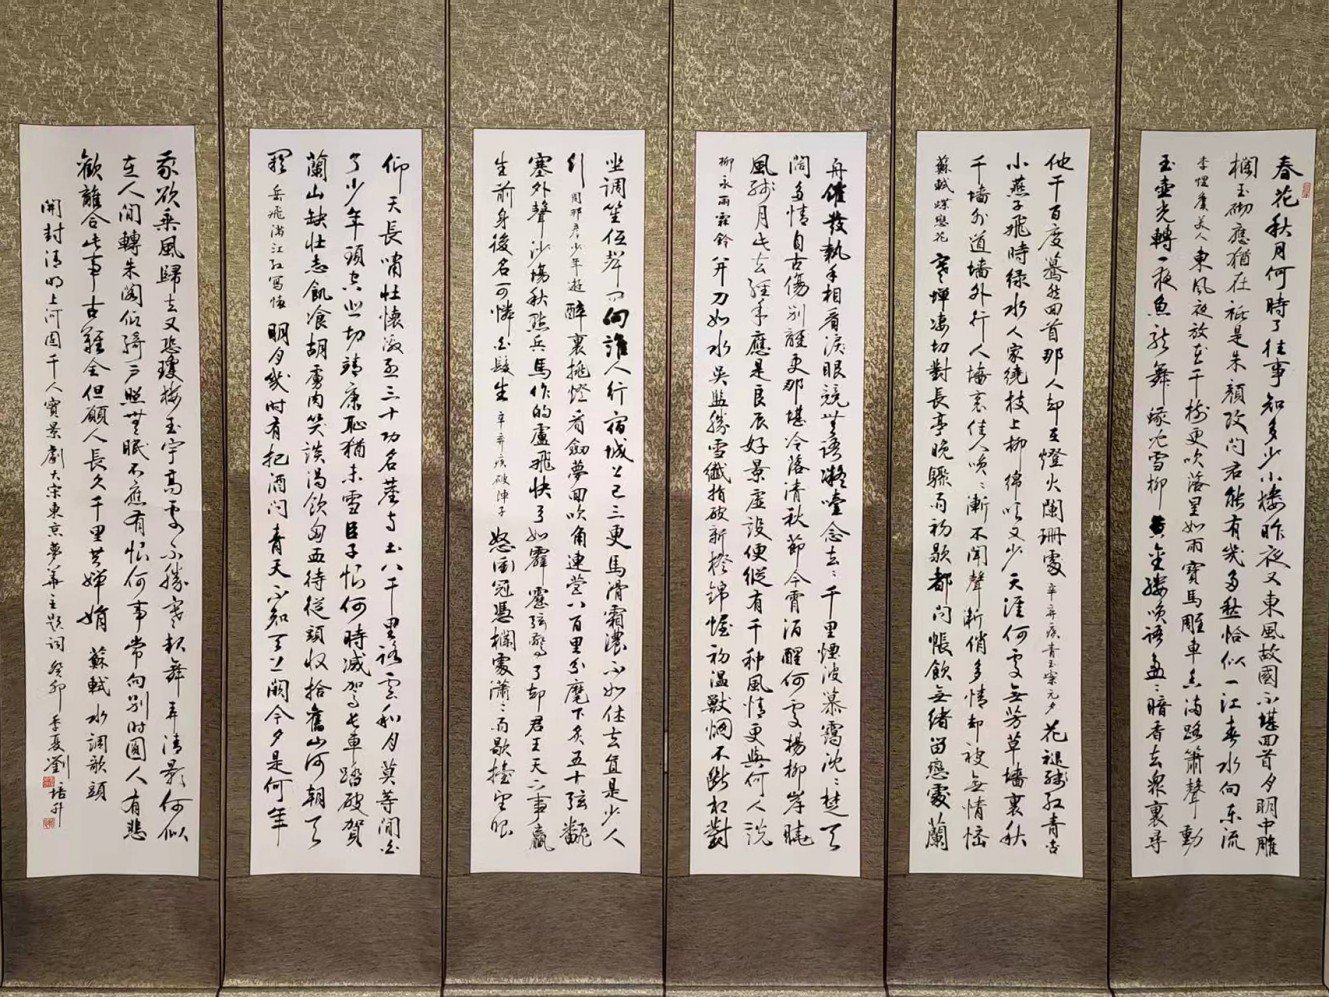 春花秋月何時了往事知多少小樓昨夜又東風故國不堪回首月明中雕
欄玉砌應猶在衹是朱顏改問君能有幾多愁恰似一江春水向東流
李煜虞美人 東風夜放花千樹更吹落星如雨寶馬雕車香滿路簫聲動
玉壺光轉一夜魚龍舞蛾兒雪柳黃金縷笑語盈々暗香去眾裏尋
他千百度驀然回首那人却在燈火闌珊處 辛棄疾青玉案元夕 花褪殘紅青杏
小燕子飛時綠水人家繞枝上柳綿吹又少天涯何處無芳草墻裏秋
千墻外道墻外行人墻裏佳人笑々漸不聞聲漸悄多情却被無情惱
蘇軾蝶戀花 寒蟬凄切對長亭晚驟雨初歇都門帳飲無緒留戀處蘭
舟催發執手相看淚眼竟無語凝噎念去々千里煙波暮靄沈々楚天
闊多情自古傷別離更那堪冷落清秋節今宵酒醒何處楊柳岸曉
風殘月此去經年應是良辰好景虛設便縱有千種風情更與何人說
柳永雨霖鈴 并刀如水吳鹽勝雪纖指破新橙錦幄初溫獸烟不斷相對
坐調笙低聲問向誰人行宿城上已三更馬滑霜濃不如休去直是少人
行 周邦彥少年遊 醉裏挑燈看劍夢回吹角連營八百里分麾下炙五十弦翻
塞外聲沙場秋點兵馬作的盧飛快弓如霹靂弦驚了却君王天下事贏
生前身後名可憐白髮生 辛棄疾破陣子 怒衝冠憑欄處瀟々雨歇擡望眼
仰天長嘯壯懷激烈三十功名塵與土八千里路雲和月莫等閒白
了少年頭空悲切靖康恥猶未雪臣子恨何時滅駕長車踏破賀
蘭山缺壯志飢飡胡虜肉笑談渴飲匈奴血待從頭收拾舊山河朝天
闕 岳飛滿江紅寫懷 明月幾時有把酒問青天不知天上闕今夕是何年
我欲乘風歸去又恐瓊樓玉宇高處不勝寒起舞弄清影何似
在人間轉朱閣低綺戶照無眠不應有恨何事常向別時圓人有悲
歡離合此事古難全但願人長久千里共嬋娟 蘇軾水調歌頭
開封清明上河園千人實景劇大宋東京夢華主題詞 癸卯季夏 劉培升